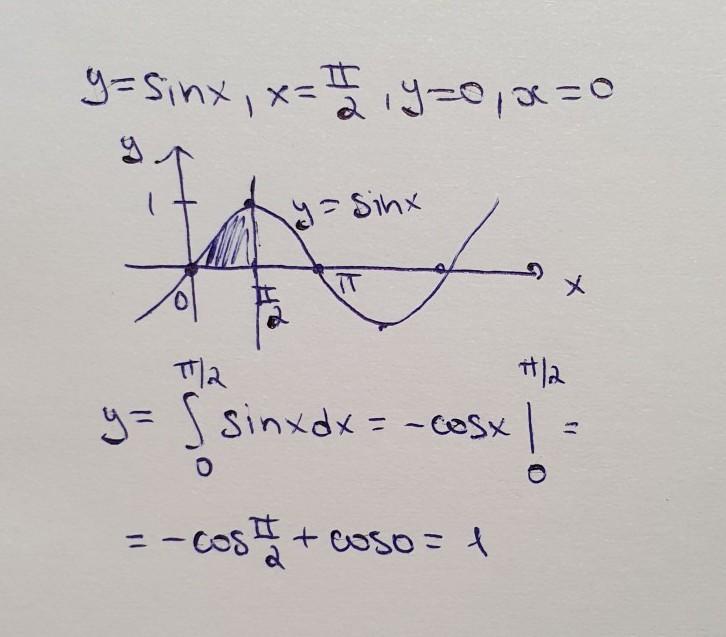 y=sinx, x=π/2, y=0, x=0
y
1
y=sinx
0
π/2
π
x
y= ∫₀^(π/2) sinxdx = -cosx |₀^(π/2) =
= -cos π/2 + cos0 = 1